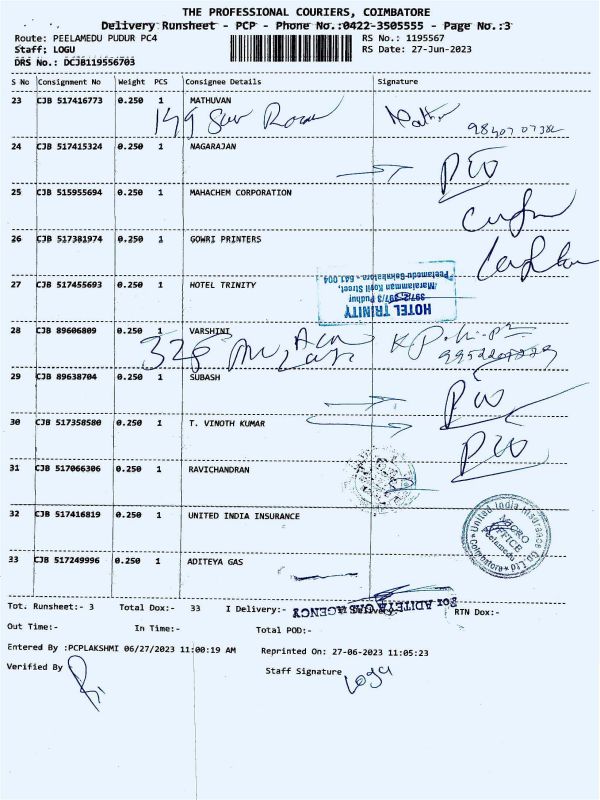 THE PROFESSIONAL COURIERS, COIMBATORE
Delivery Runsheet - PCP - Phone No.:0422-3505555 - Page No.:3
Route: PEELAMEDU PUDUR PC4 RS No.: 1195567
Staff: LOGU RS Date: 27-Jun-2023
DRS No.: DCJB119556703
S No Consignment No Weight PCS Consignee Details Signature
23 CJB 517416773 0.250 1 MATHUVAN
149
98407 07382
24 CJB 517415324 0.250 1 NAGARAJAN
25 CJB 515955694 0.250 1 MAHACHEM CORPORATION
26 CJB 517381974 0.250 1 GOWRI PRINTERS
27 CJB 517455693 0.250 1 HOTEL TRINITY
HOTEL TRINITY
397/3 Pudhur
Maralamman Kovil Street,
Peelamedu Coimbatore - 641 004
28 CJB 89606809 0.250 1 VARSHINI
328
29 CJB 89638704 0.250 1 SUBASH
30 CJB 517358580 0.250 1 T. VINOTH KUMAR
31 CJB 517066306 0.250 1 RAVICHANDRAN
32 CJB 517416819 0.250 1 UNITED INDIA INSURANCE
United India Insurance Co. Ltd
MICRO OFFICE
Peelamedu
Coimbatore
33 CJB 517249996 0.250 1 ADITEYA GAS
For ADITEYA GAS AGENCY
Tot. Runsheet:- 3 Total Dox:- 33 I Delivery:- Delivery:- RTN Dox:-
Out Time:- In Time:- Total POD:-
Entered By :PCPLAKSHMI 06/27/2023 11:00:19 AM Reprinted On: 27-06-2023 11:05:23
Verified By Staff Signature
Logu